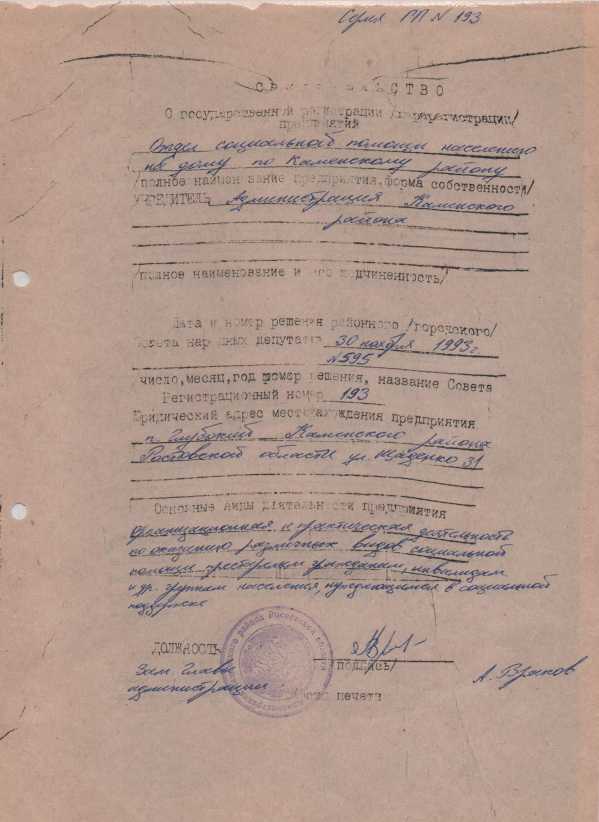 Серия ГП N 193
СВИДЕТЕЛЬСТВО
О государственной регистрации /перерегистрации/
предприятий
Отдел социальной помощи населению
на дому по Каменскому району
/полное наименование предприятия, форма собственности/
УЧРЕДИТЕЛЬ Администрация Каменского
района
/полное наименование и его подчиненность/
Дата и номер решения районного /городского/
Совета народных депутатов 30 ноября 1993 г
N 595
/число, месяц, год номер решения, название Совета
Регистрационный номер 193
Юридический адрес местонахождения предприятия
п. Глубокий Каменского района
Ростовской области ул. Щаденко 31
Основные виды деятельности предприятия
организационная и практическая деятельность
по оказанию различных видов социальной
помощи престарелым гражданам, инвалидам
и др. группам населения, нуждающимся в социальной
поддержке
района Ростовской
Администрация
ДОЛЖНОСТЬ
Зам. Главы /подпись/ А. Враков
администрации
печати